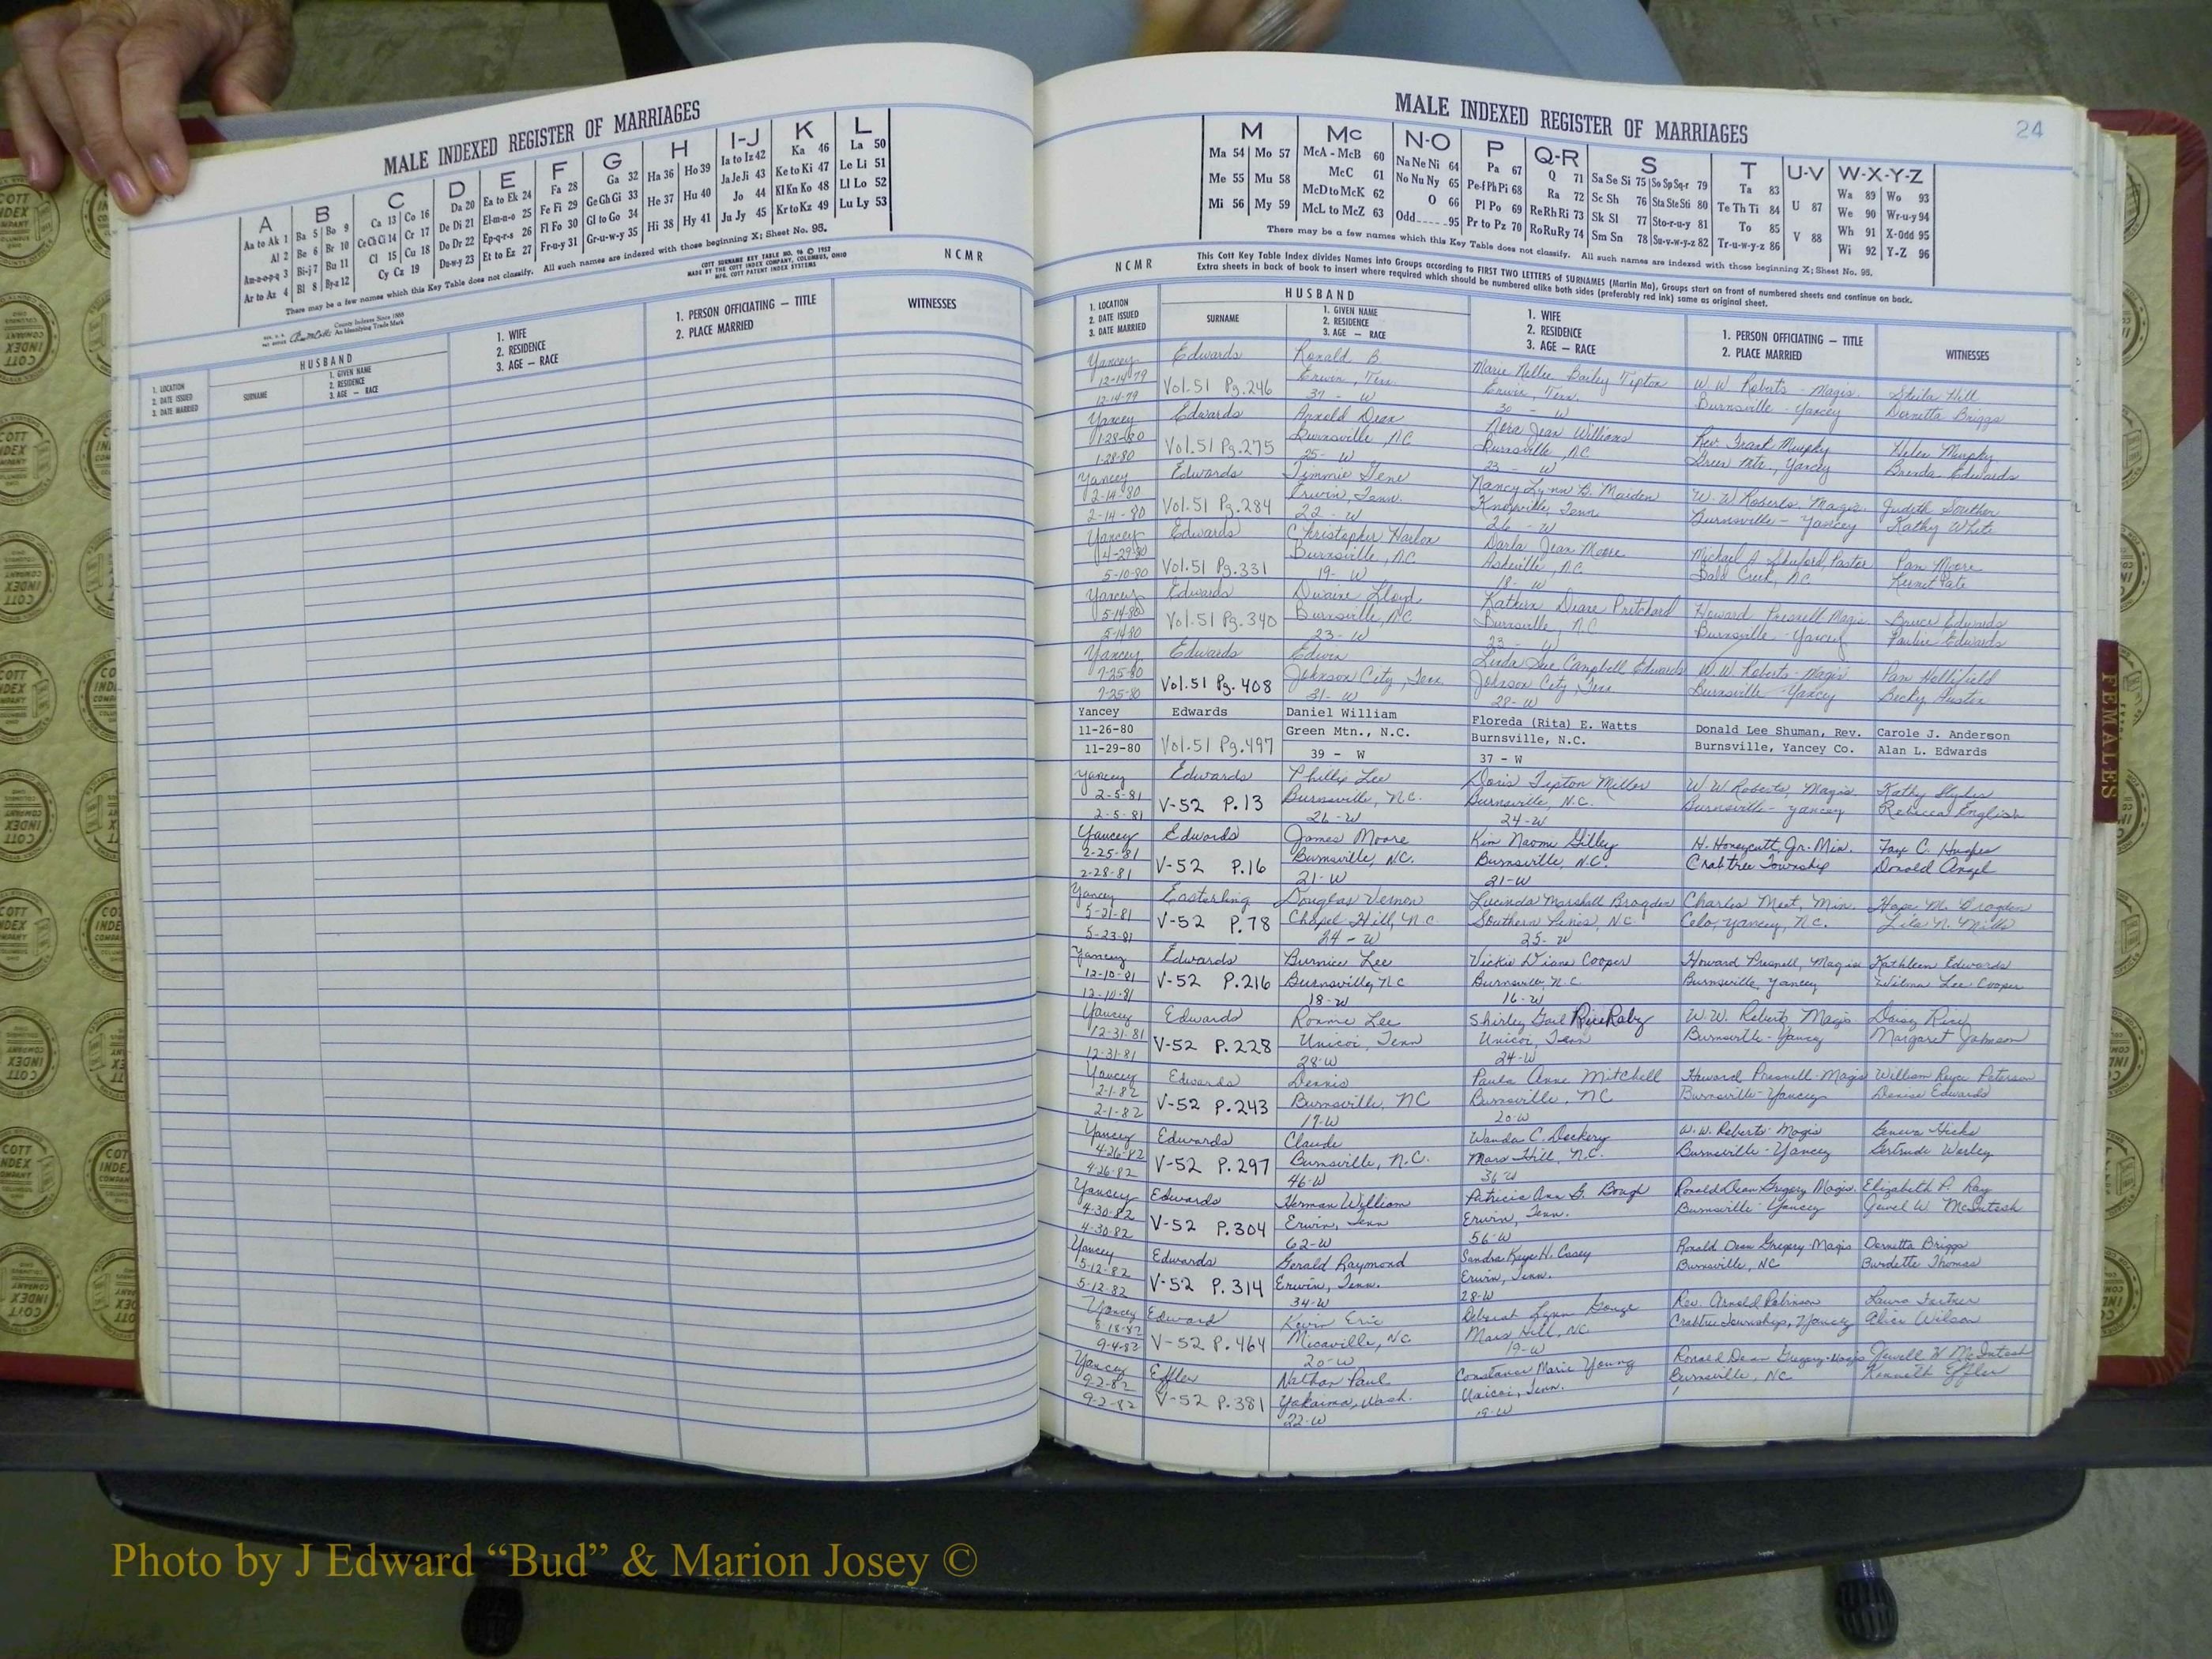 MALE INDEXED REGISTER OF MARRIAGES
A B C D E F G H I-J K L
Aa to Ak 1 Ba 5 Bo 9 Ca 13 Co 16 Da 20 Ea to Ek 24 Fa 28 Ga 32 Ha 36 Ho 39 Ia to Iz 42 Ka 46 La 50
Al 2 Be 6 Br 10 Ce Ch Ci 14 Cr 17 De Di 21 El-m-n-o 25 Fe Fi 29 Ge Gh Gi 33 He 37 Hu 40 Ja Je Ji 43 Ke to Ki 47 Le Li 51
An-a-o-p-q 3 Bi-j 7 Bu 11 Cl 15 Cu 18 Do Dr 22 Ep-q-r-s 26 Fl Fo 30 Gl to Go 34 Hi 38 Hy 41 Jo 44 Kl Kn Ko 48 Ll Lo 52
Ar to Az 4 Bl 8 By-z 12 Cy Cz 19 Du-w-y 23 Et to Ez 27 Fr-u-y 31 Gr-u-w-y 35 Ju Jy 45 Kr to Kz 49 Lu Ly 53
There may be a few names which this Key Table does not classify. All such names are indexed with those beginning X; Sheet No. 95.
COTT SURNAME KEY TABLE NO. 96 © 1952
MADE BY THE COTT INDEX COMPANY, COLUMBUS, OHIO
MFG. COTT PATENT INDEX SYSTEMS
N C M R
County Indexes Since 1888
An Identifying Trade Mark
HUSBAND
1. LOCATION
2. DATE ISSUED
3. DATE MARRIED
SURNAME
1. GIVEN NAME
2. RESIDENCE
3. AGE — RACE
1. WIFE
2. RESIDENCE
3. AGE — RACE
1. PERSON OFFICIATING — TITLE
2. PLACE MARRIED
WITNESSES
MALE INDEXED REGISTER OF MARRIAGES
24
M Mc N-O P Q-R S T U-V W-X-Y-Z
Ma 54 Mo 57 McA - McB 60 Na Ne Ni 64 Pa 67 Q 71 Sa Se Si 75 So Sp Sq-r 79 Ta 83 U 87 Wa 89 Wo 93
Me 55 Mu 58 McC 61 No Nu Ny 65 Pe-f Ph Pi 68 Ra 72 Sc Sh 76 Sta Ste Sti 80 Te Th Ti 84 V 88 We 90 Wr-u-y 94
Mi 56 My 59 McD to McK 62 O 66 Pl Po 69 Re Rh Ri 73 Sk Sl 77 Sto-r-u-y 81 To 85 Wh 91 X-Odd 95
McL to McZ 63 Odd 95 Pr to Pz 70 Ro Ru Ry 74 Sm Sn 78 Su-v-w-y-z 82 Tr-u-w-y-z 86 Wi 92 Y-Z 96
There may be a few names which this Key Table does not classify. All such names are indexed with those beginning X; Sheet No. 95.
This Cott Key Table Index divides Names into Groups according to FIRST TWO LETTERS of SURNAMES (Martin Ma), Groups start on front of numbered sheets and continue on back.
Extra sheets in back of book to insert where required which should be numbered alike both sides (preferably red ink) same as original sheet.
N C M R
HUSBAND
1. LOCATION
2. DATE ISSUED
3. DATE MARRIED
SURNAME
1. GIVEN NAME
2. RESIDENCE
3. AGE — RACE
1. WIFE
2. RESIDENCE
3. AGE — RACE
1. PERSON OFFICIATING — TITLE
2. PLACE MARRIED
WITNESSES
Yancey Edwards Ronald B Marie Nellie Bailey Tipton W. W. Roberts - Magis. Sheila Hill
12-14-79 Vol.51 Pg.246 Erwin, Tenn. Erwin, Tenn. Burnsville - Yancey Dernetta Briggs
12-14-79 37 - W 30 - W
Yancey Edwards Arnold Dean Nora Jean Williams Rev. Frank Murphy Helen Murphy
1-28-80 Vol.51 Pg.275 Burnsville, NC Burnsville, NC Green Mtn., Yancey Brenda Edwards
1-28-80 25 - W 23 - W
Yancey Edwards Jimmie Gene Nancy Lynn B. Maiden W. W. Roberts. Magis. Judith Souther
2-14-80 Vol.51 Pg.284 Erwin, Tenn. Knoxville, Tenn Burnsville - Yancey Kathy White
2-14-80 22 - W 26 - W
Yancey Edwards Christopher Harlon Darla Jean Moore Michael A. Shuford, Pastor Pam Moore
4-29-80 Vol.51 Pg.331 Burnsville, NC Asheville, NC Bald Creek, NC Kermit Pate
5-10-80 19 - W 18 - W
Yancey Edwards Dwaine Lloyd Kathern Diane Pritchard Howard Presnell Magis. Bruce Edwards
5-14-80 Vol.51 Pg.340 Burnsville, NC Burnsville, NC Burnsville - Yancey Pauline Edwards
5-14-80 23 - W 23 - W
Yancey Edwards Edwin Linda Sue Campbell Edwards W. W. Roberts - Magis Pam Hollifield
7-25-80 Vol.51 Pg.408 Johnson City, Tenn. Johnson City, Tenn Burnsville - Yancey Becky Austin
7-25-80 31 - W 28 - W
Yancey Edwards Daniel William Floreda (Rita) E. Watts Donald Lee Shuman, Rev. Carole J. Anderson
11-26-80 Vol.51 Pg.497 Green Mtn., N.C. Burnsville, N.C. Burnsville, Yancey Co. Alan L. Edwards
11-29-80 39 - W 37 - W
Yancey Edwards Phillip Lee Doris Tipton Miller W W Roberts, Magis. Kathy
2-5-81 V-52 P.13 Burnsville, N.C. Burnsville, N.C. Burnsville - Yancey Rebecca English
2-5-81 26-W 24-W
Yancey Edwards James Moore Kim Naomi Gilley H. Honeycutt, Jr. Min. Faye C. Hughes
2-25-81 V-52 P.16 Burnsville, NC. Burnsville, N.C. Crabtree Township Donald Angel
2-28-81 21-W 21-W
Yancey Easterling Douglas Vernon Lucinda Marshall Brogden Charles Meet, Min. Hope M. Brogden
5-21-81 V-52 P.78 Chapel Hill, N.C. Southern Pines, NC Celo, Yancey, N.C. Lila N. Mills
5-23-81 24 - W 25 - W
Yancey Edwards Burnice Lee Vickie Diane Cooper Howard Presnell, Magis Kathleen Edwards
12-10-81 V-52 P.216 Burnsville, NC Burnsville, NC Burnsville, Yancey Wilma Lee Cooper
12-10-81 18-W 16-W
Yancey Edwards Ronnie Lee Shirley Gail Rice Raby W. W. Roberts Magis Daisy Rice
12-31-81 V-52 P.228 Unicoi, Tenn Unicoi, Tenn Burnsville - Yancey Margaret Johnson
12-31-81 28-W 24-W
Yancey Edwards Dennis Paula Anne Mitchell Howard Presnell-Magis William Royce Peterson
2-1-82 V-52 P.243 Burnsville, NC Burnsville, NC Burnsville-Yancey Denise Edwards
2-1-82 19-W 20-W
Yancey Edwards Claude Wanda C. Dockery W. W. Roberts-Magis Geneva Hicks
4-26-82 V-52 P.297 Burnsville, N.C. Mars Hill, N.C. Burnsville-Yancey Gertrude Worley
4-26-82 46-W 36-W
Yancey Edwards Herman William Patricia Ann G. Bough Ronald Dean Gregory Magis. Elizabeth P. Ray
4-30-82 V-52 P.304 Erwin, Tenn Erwin, Tenn. Burnsville-Yancey Jewel W. McIntosh
4-30-82 62-W 56-W
Yancey Edwards Gerald Raymond Sandra Kaye H. Casey Ronald Dean Gregory-Magis Dernetta Briggs
5-12-82 V-52 P.314 Erwin, Tenn. Erwin, Tenn. Burnsville, NC Burdette Thomas
5-12-82 34-W 28-W
Yancey Edward Kevin Eric Deborah Lynn Gouge Rev. Arnold Robinson Laura
8-18-82 V-52 P.464 Micaville, NC Mars Hill, NC Crabtree Township, Yancey Alice Wilson
9-4-82 20-W 19-W
Yancey Effler Nathan Paul Constance Marie Young Ronald Dean Gregory-Magis Jewell W McIntosh
9-2-82 V-52 P.381 Yakaima, Wash. Unicoi, Tenn. Burnsville, NC Kenneth Effler
9-2-82 22-W 19-W
FEMALES
Photo by J Edward “Bud” & Marion Josey ©